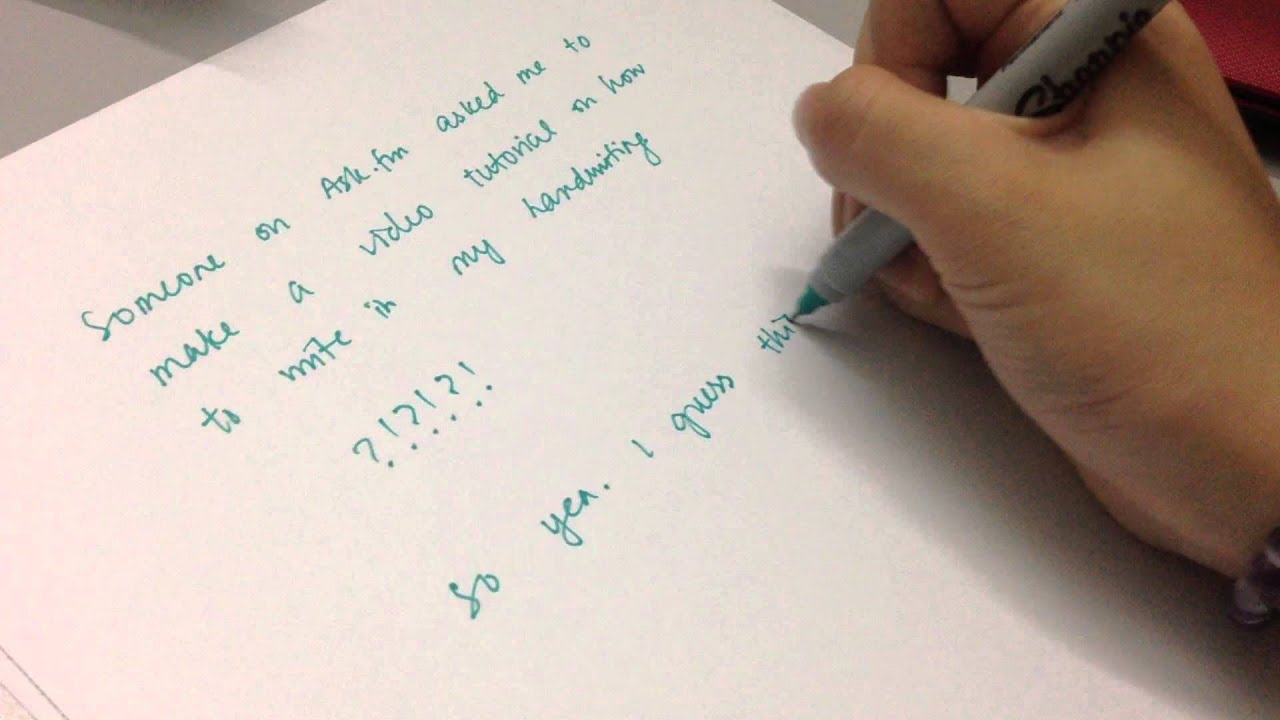 Someone on Ask.fm asked me to
make a video tutorial on how
to write in my handwriting
?!?!?!
So yea. I guess thi
Sharpie